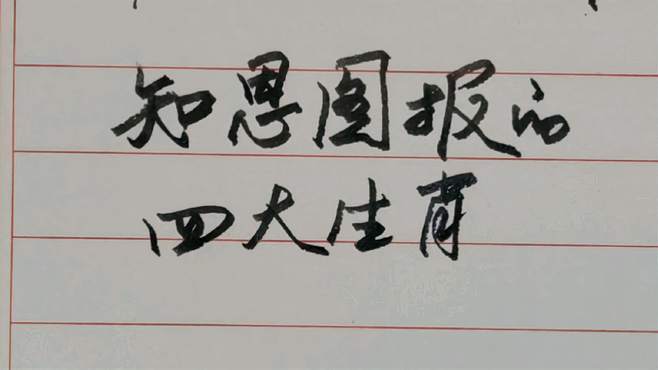 知恩图报的
四大生肖